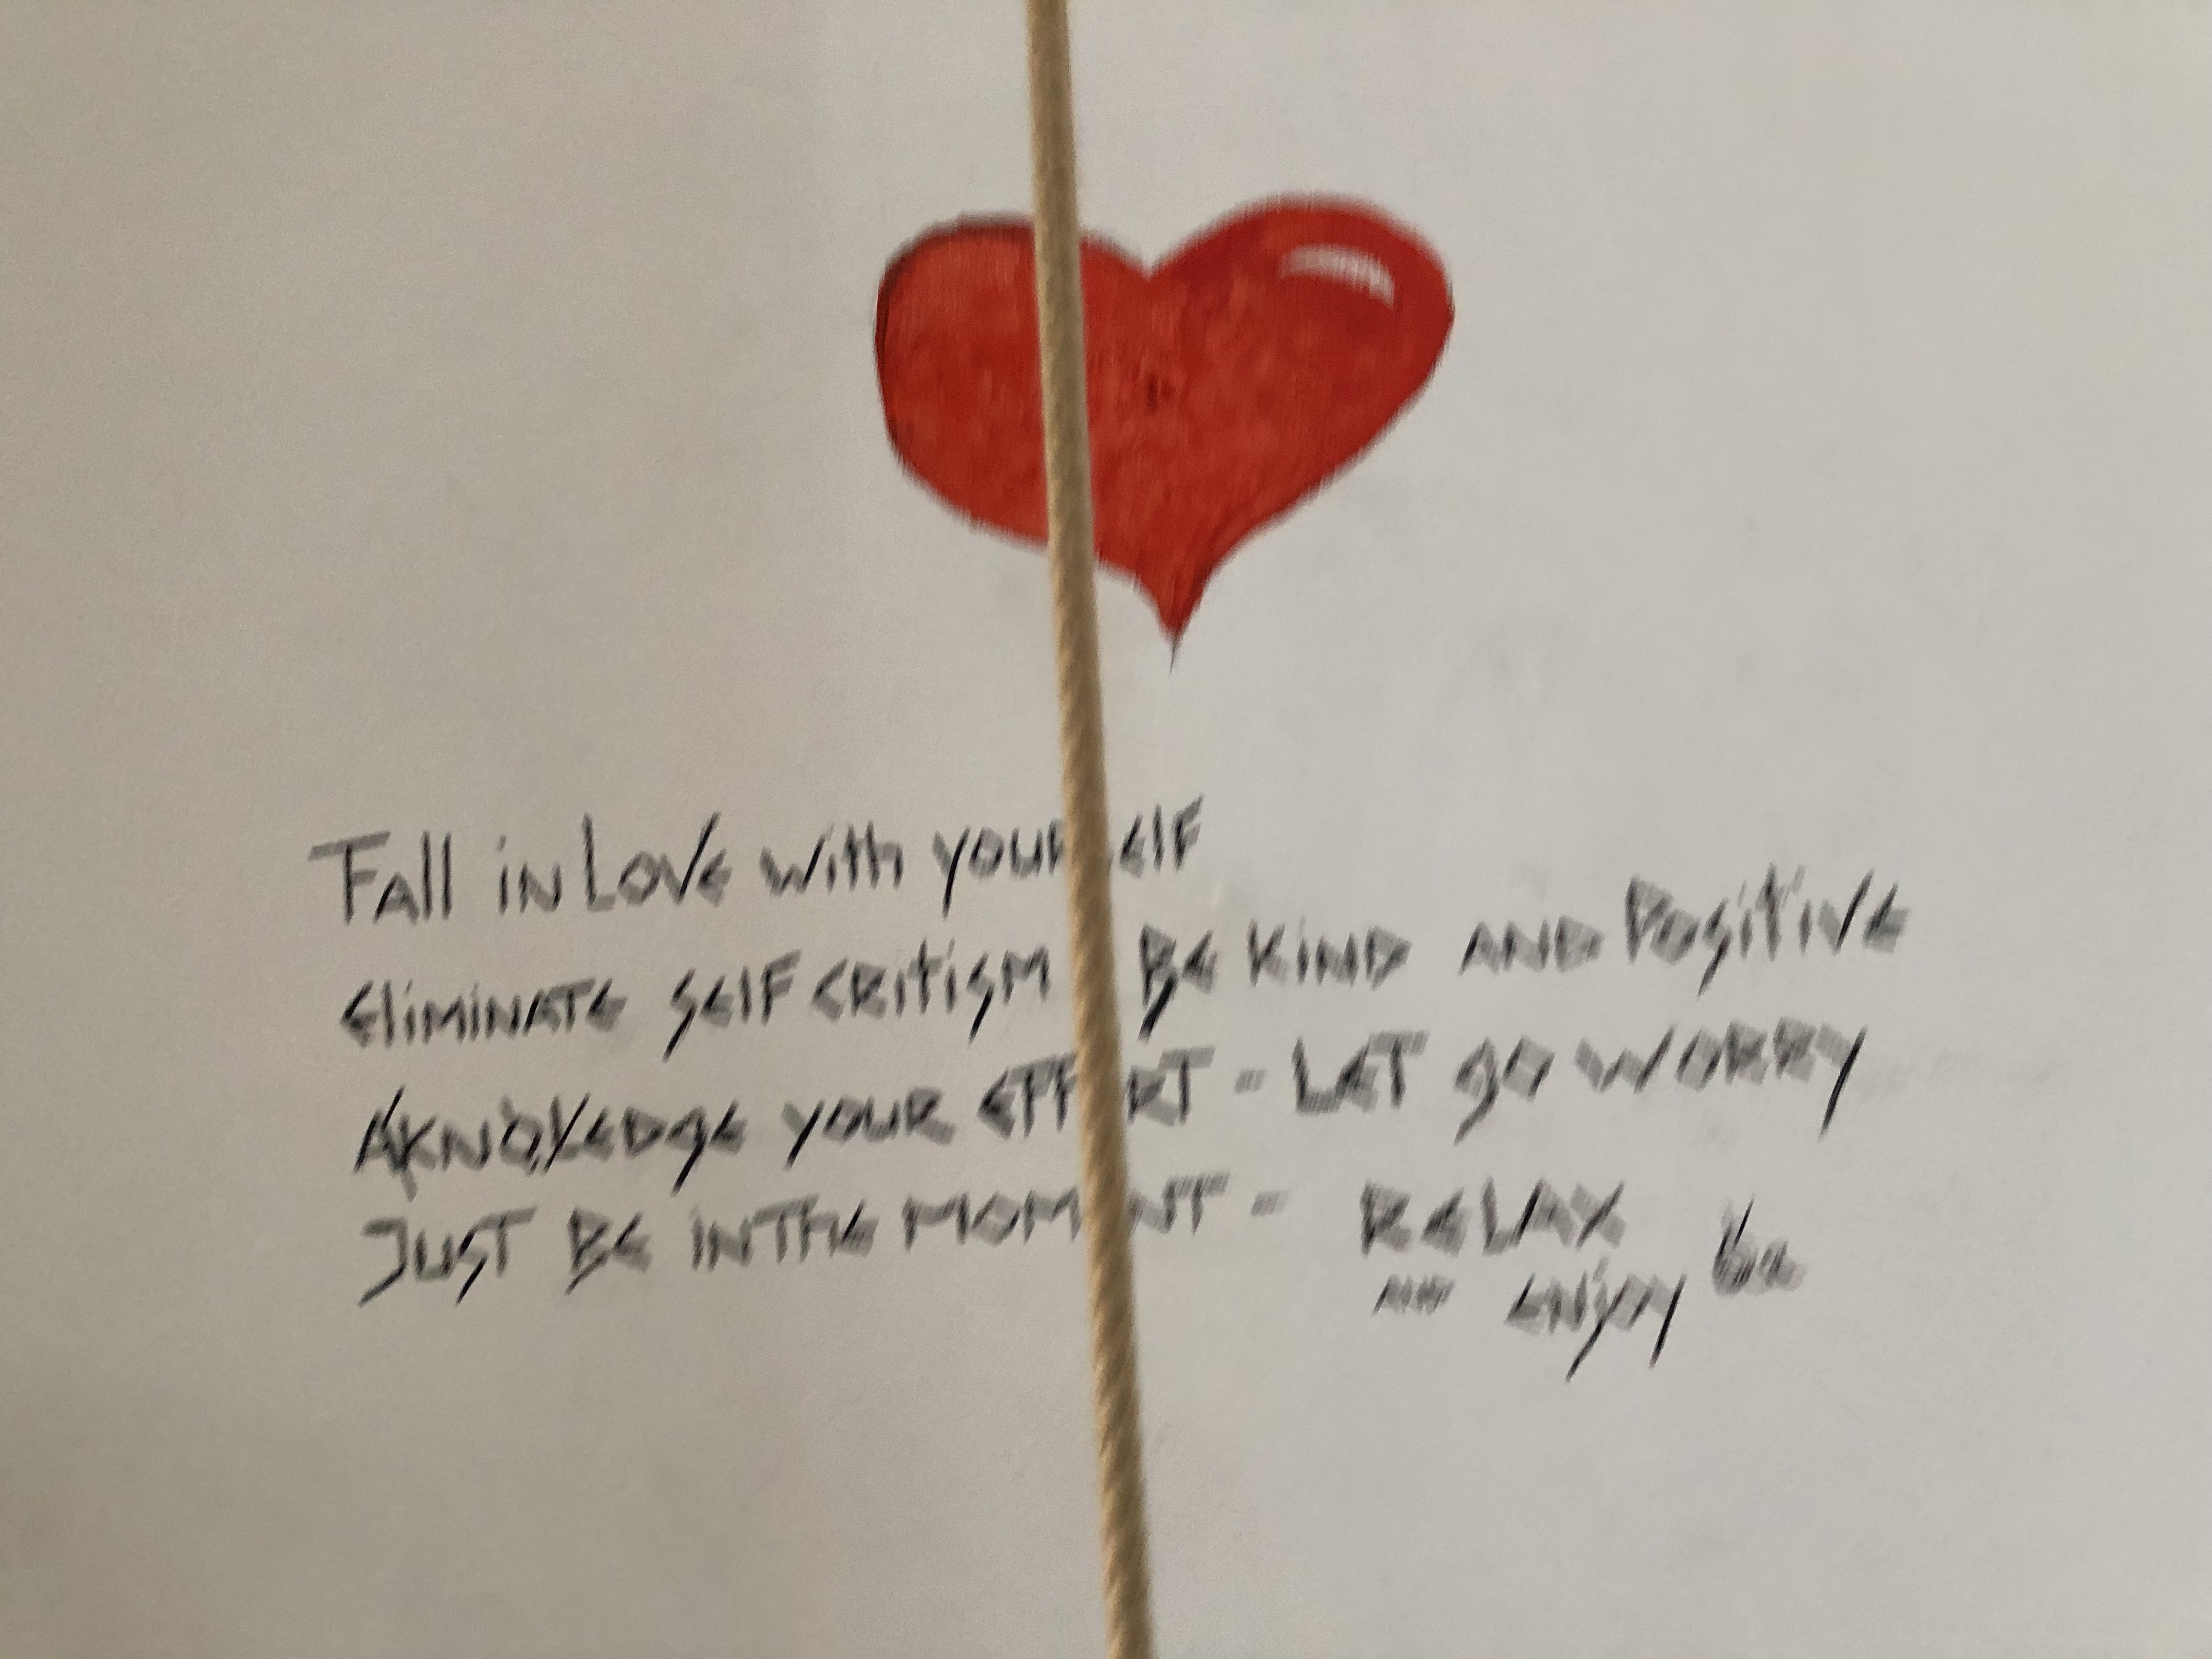 Fall in Love with yourself
Eliminate self critism Be Kind AND Positive
Aknowledge your effort - LET go worry
JUST BE IN THE MOMENT - RELAX
AND ENJOY